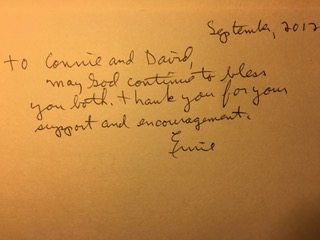 September, 2012
to Connie and David,
may God continue to bless
you both. thank you for your
support and encouragement.
Ernie